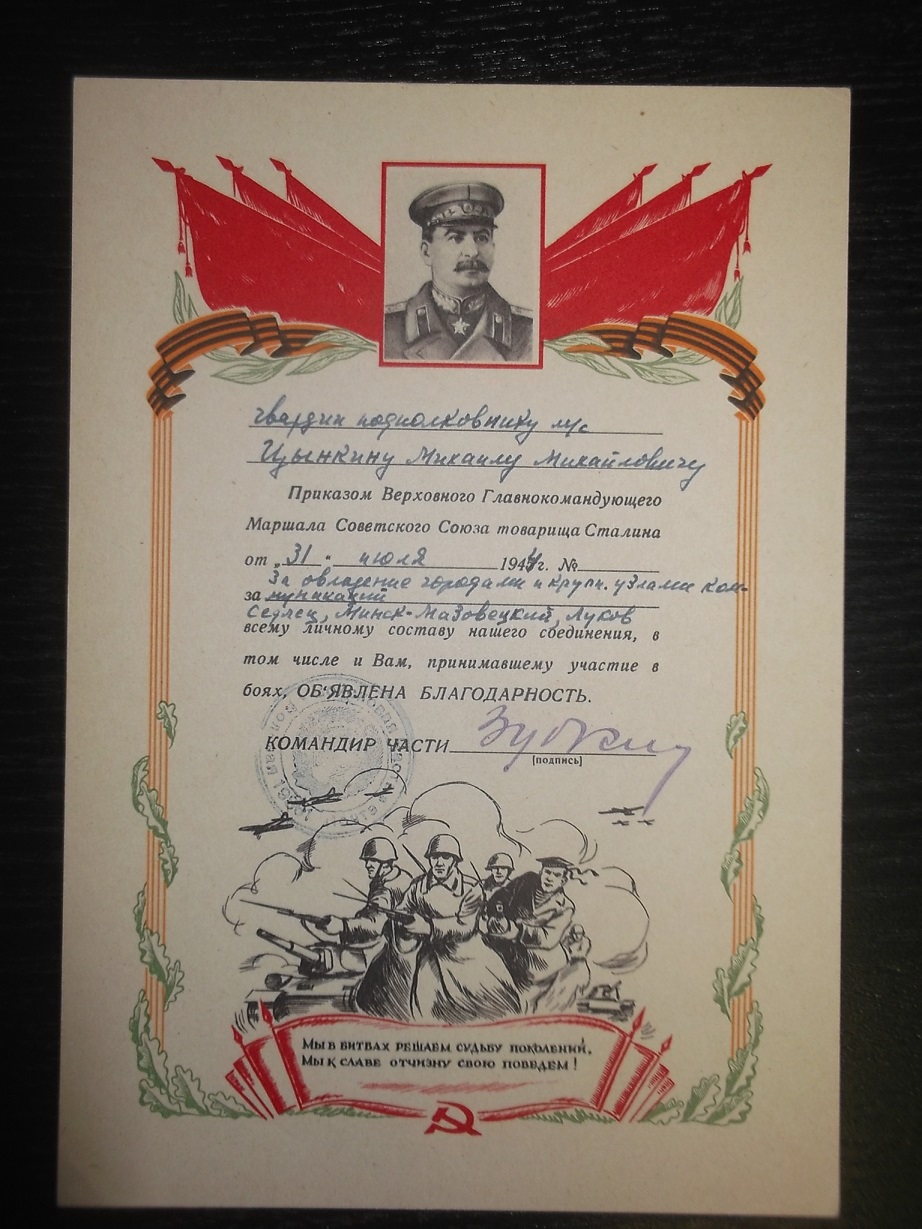 гвардии подполковнику м/с
Цынкину Михаилу Михайловичу
Приказом Верховного Главнокомандующего
Маршала Советского Союза товарища Сталина
от „31" июля 1944 г. №
За овладение городами и крупн. узлами ком-
за муникаций
Седлец, Минск-Мазовецкий, Луков
всему личному составу нашего соединения, в
том числе и Вам, принимавшему участие в
боях, ОБ'ЯВЛЕНА БЛАГОДАРНОСТЬ.
КОМАНДИР ЧАСТИ
[подпись]
Мы в битвах решаем судьбу поколений,
Мы к славе отчизну свою поведем!